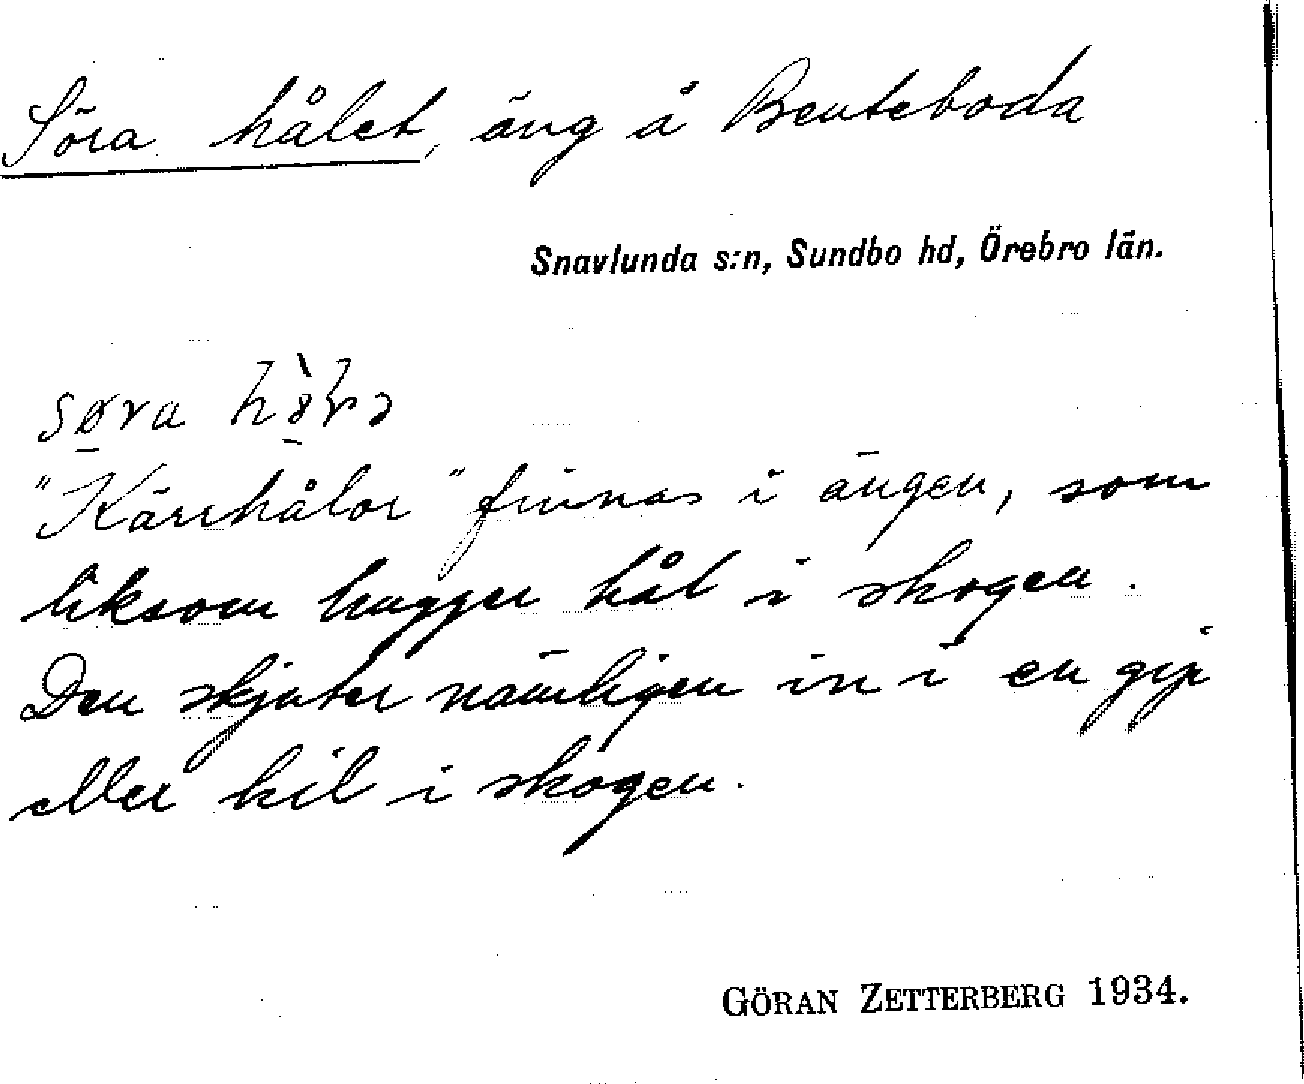 Söra hålet, äng å Benteboda
Snavlunda s:n, Sundbo hd, Örebro län.
"Kärrhålor" finnas i ängen, som
liksom hugger hål i skogen.
Den skjuter nämligen in i en gip
eller kil i skogen.
GÖRAN ZETTERBERG 1934.